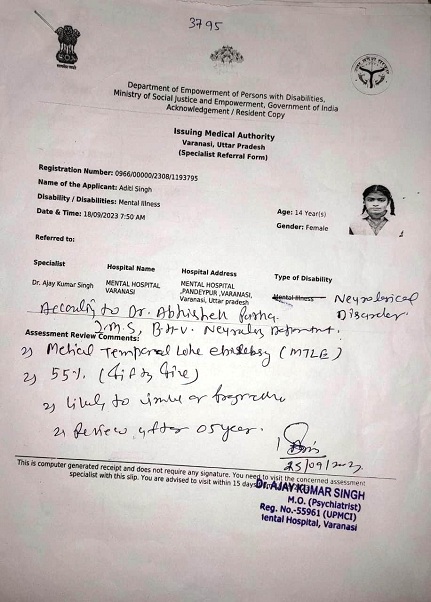 3795
Department of Empowerment of Persons with Disabilities,
Ministry of Social Justice and Empowerment, Government of India
Acknowledgement / Resident Copy
Issuing Medical Authority
Varanasi, Uttar Pradesh
(Specialist Referral Form)
Registration Number: 0966/00000/2308/1193795
Name of the Applicant: Aditi Singh
Disability / Disabilities: Mental Illness
Date & Time: 18/09/2023 7:50 AM
Age: 14 Year(s)
Gender: Female
Referred to:
Specialist Hospital Name Hospital Address Type of Disability
Dr. Ajay Kumar Singh MENTAL HOSPITAL VARANASI MENTAL HOSPITAL ,PANDEYPUR ,VARANASI, Varanasi, Uttar pradesh Mental Illness Neurological Disorder.
According to Dr. Abhishek
I.M.S, B.H.U. Neurology
Assessment Review Comments:
Temporal Lobe (MTLE)
55% (fifty five)
likely to
Review after 05 year.
25/09/2023
This is computer generated receipt and does not require any signature. You need to visit the concerned assessment
specialist with this slip. You are advised to visit within 15 days
Dr. AJAY KUMAR SINGH
M.O. (Psychiatrist)
Reg. No.-55961 (UPMCI)
Mental Hospital, Varanasi